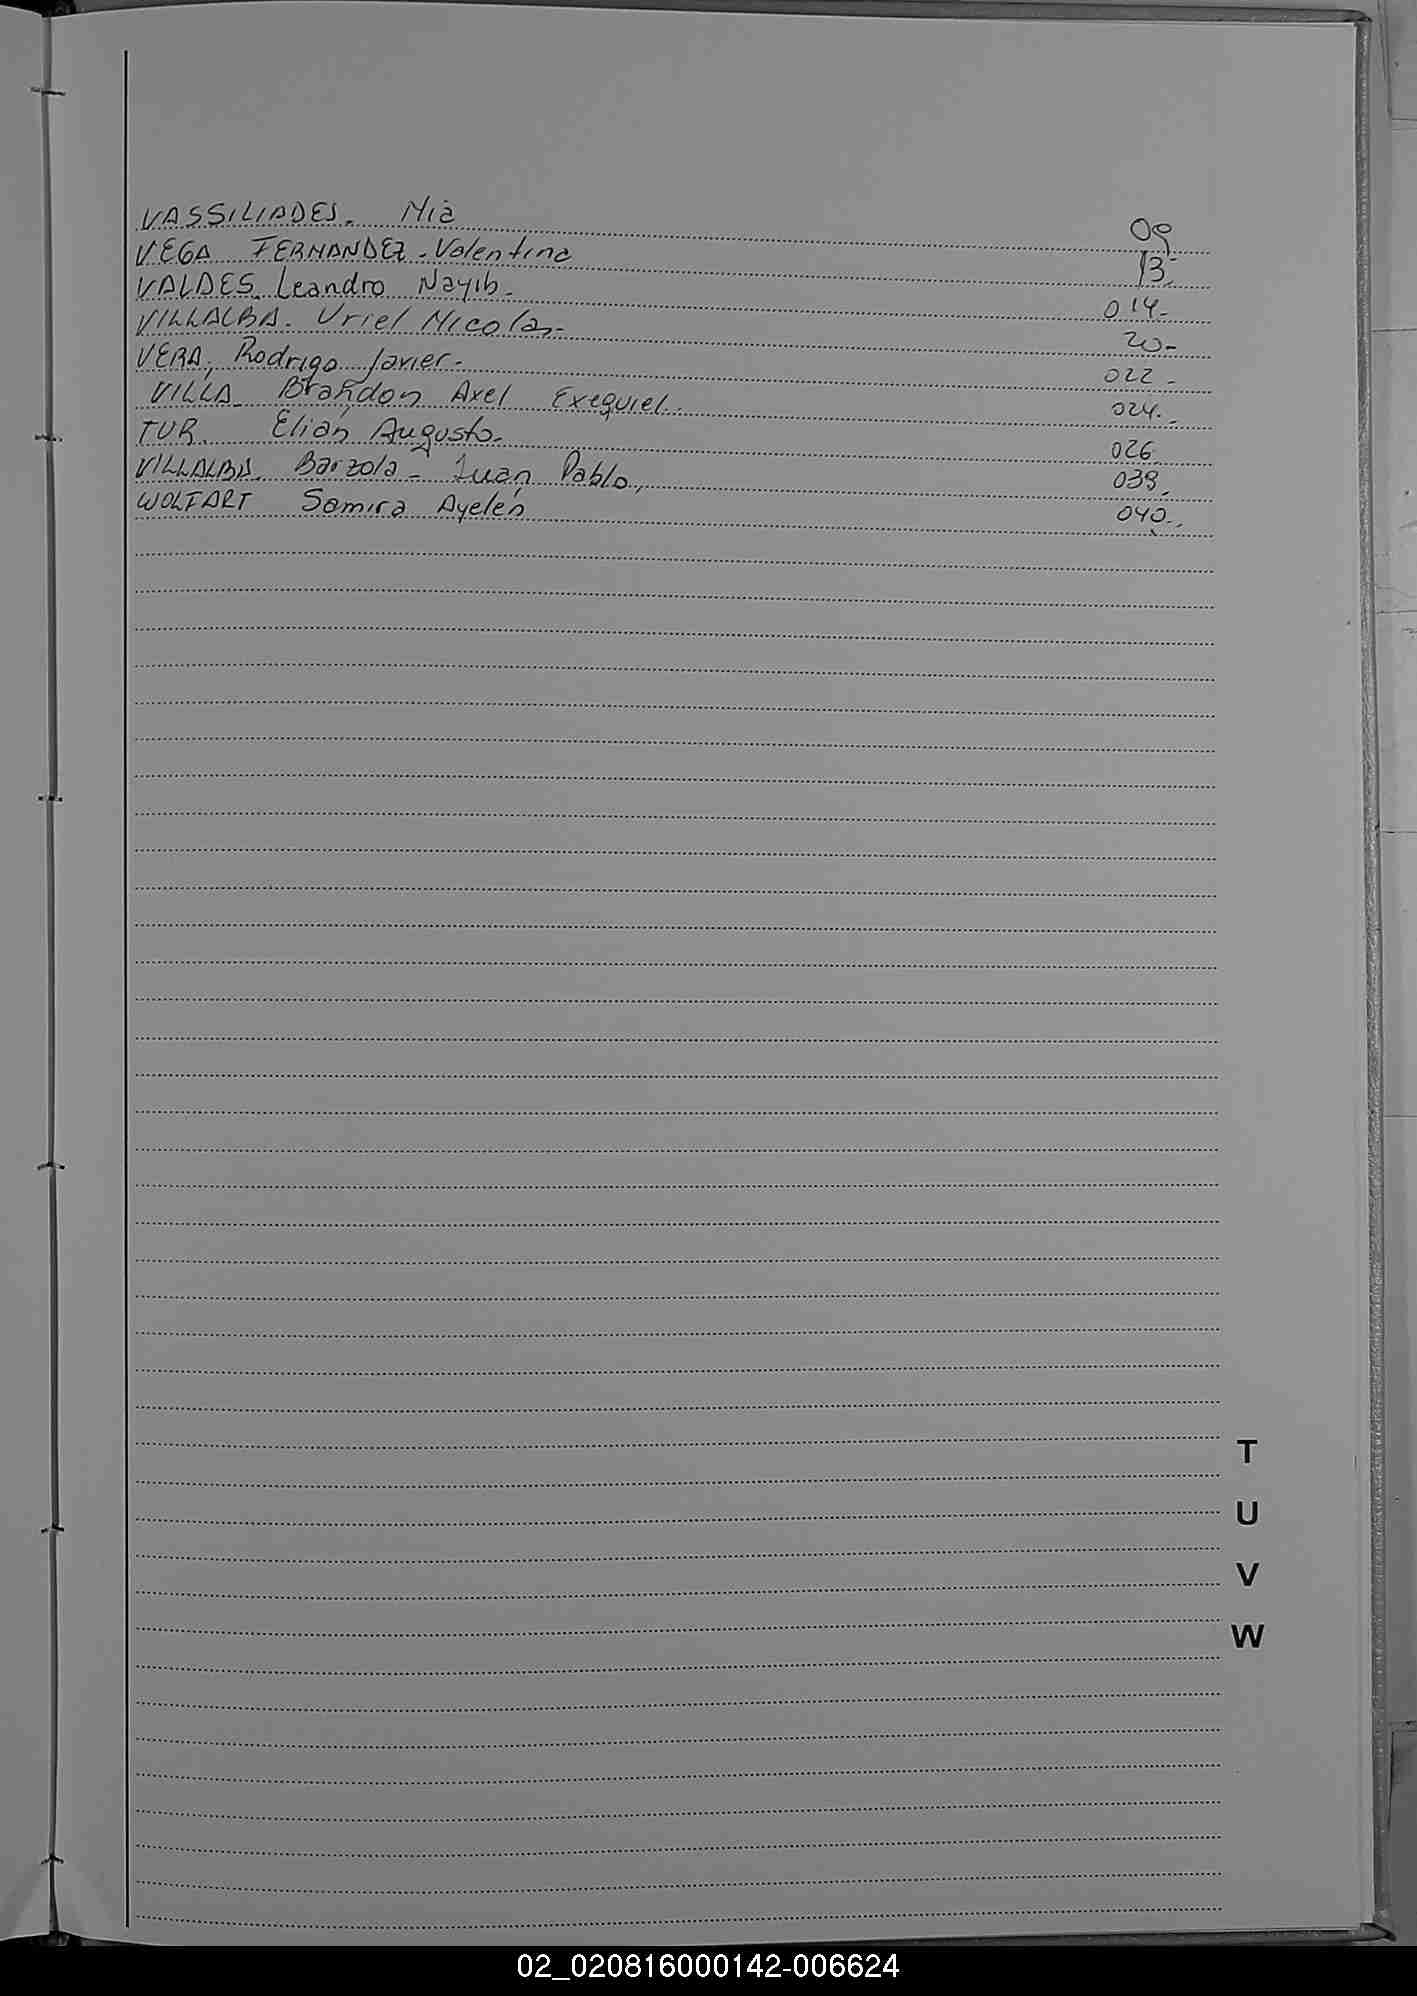 VASSILIADES. Mia 09
VEGA FERNANDEZ - Valentina 13.
VALDES. Leandro Nayib. 014-
VILLALBA. Uriel Nicolas- 20-
VERA, Rodrigo Javier- 022-
VILLA. Brandon Axel Exequiel. 024.
TUR. Elián Augusto. 026
VILLALBA. Barzola - Juan Pablo, 039.
WOLFART Samira Ayelén 040..
T
U
V
W
02_020816000142-006624